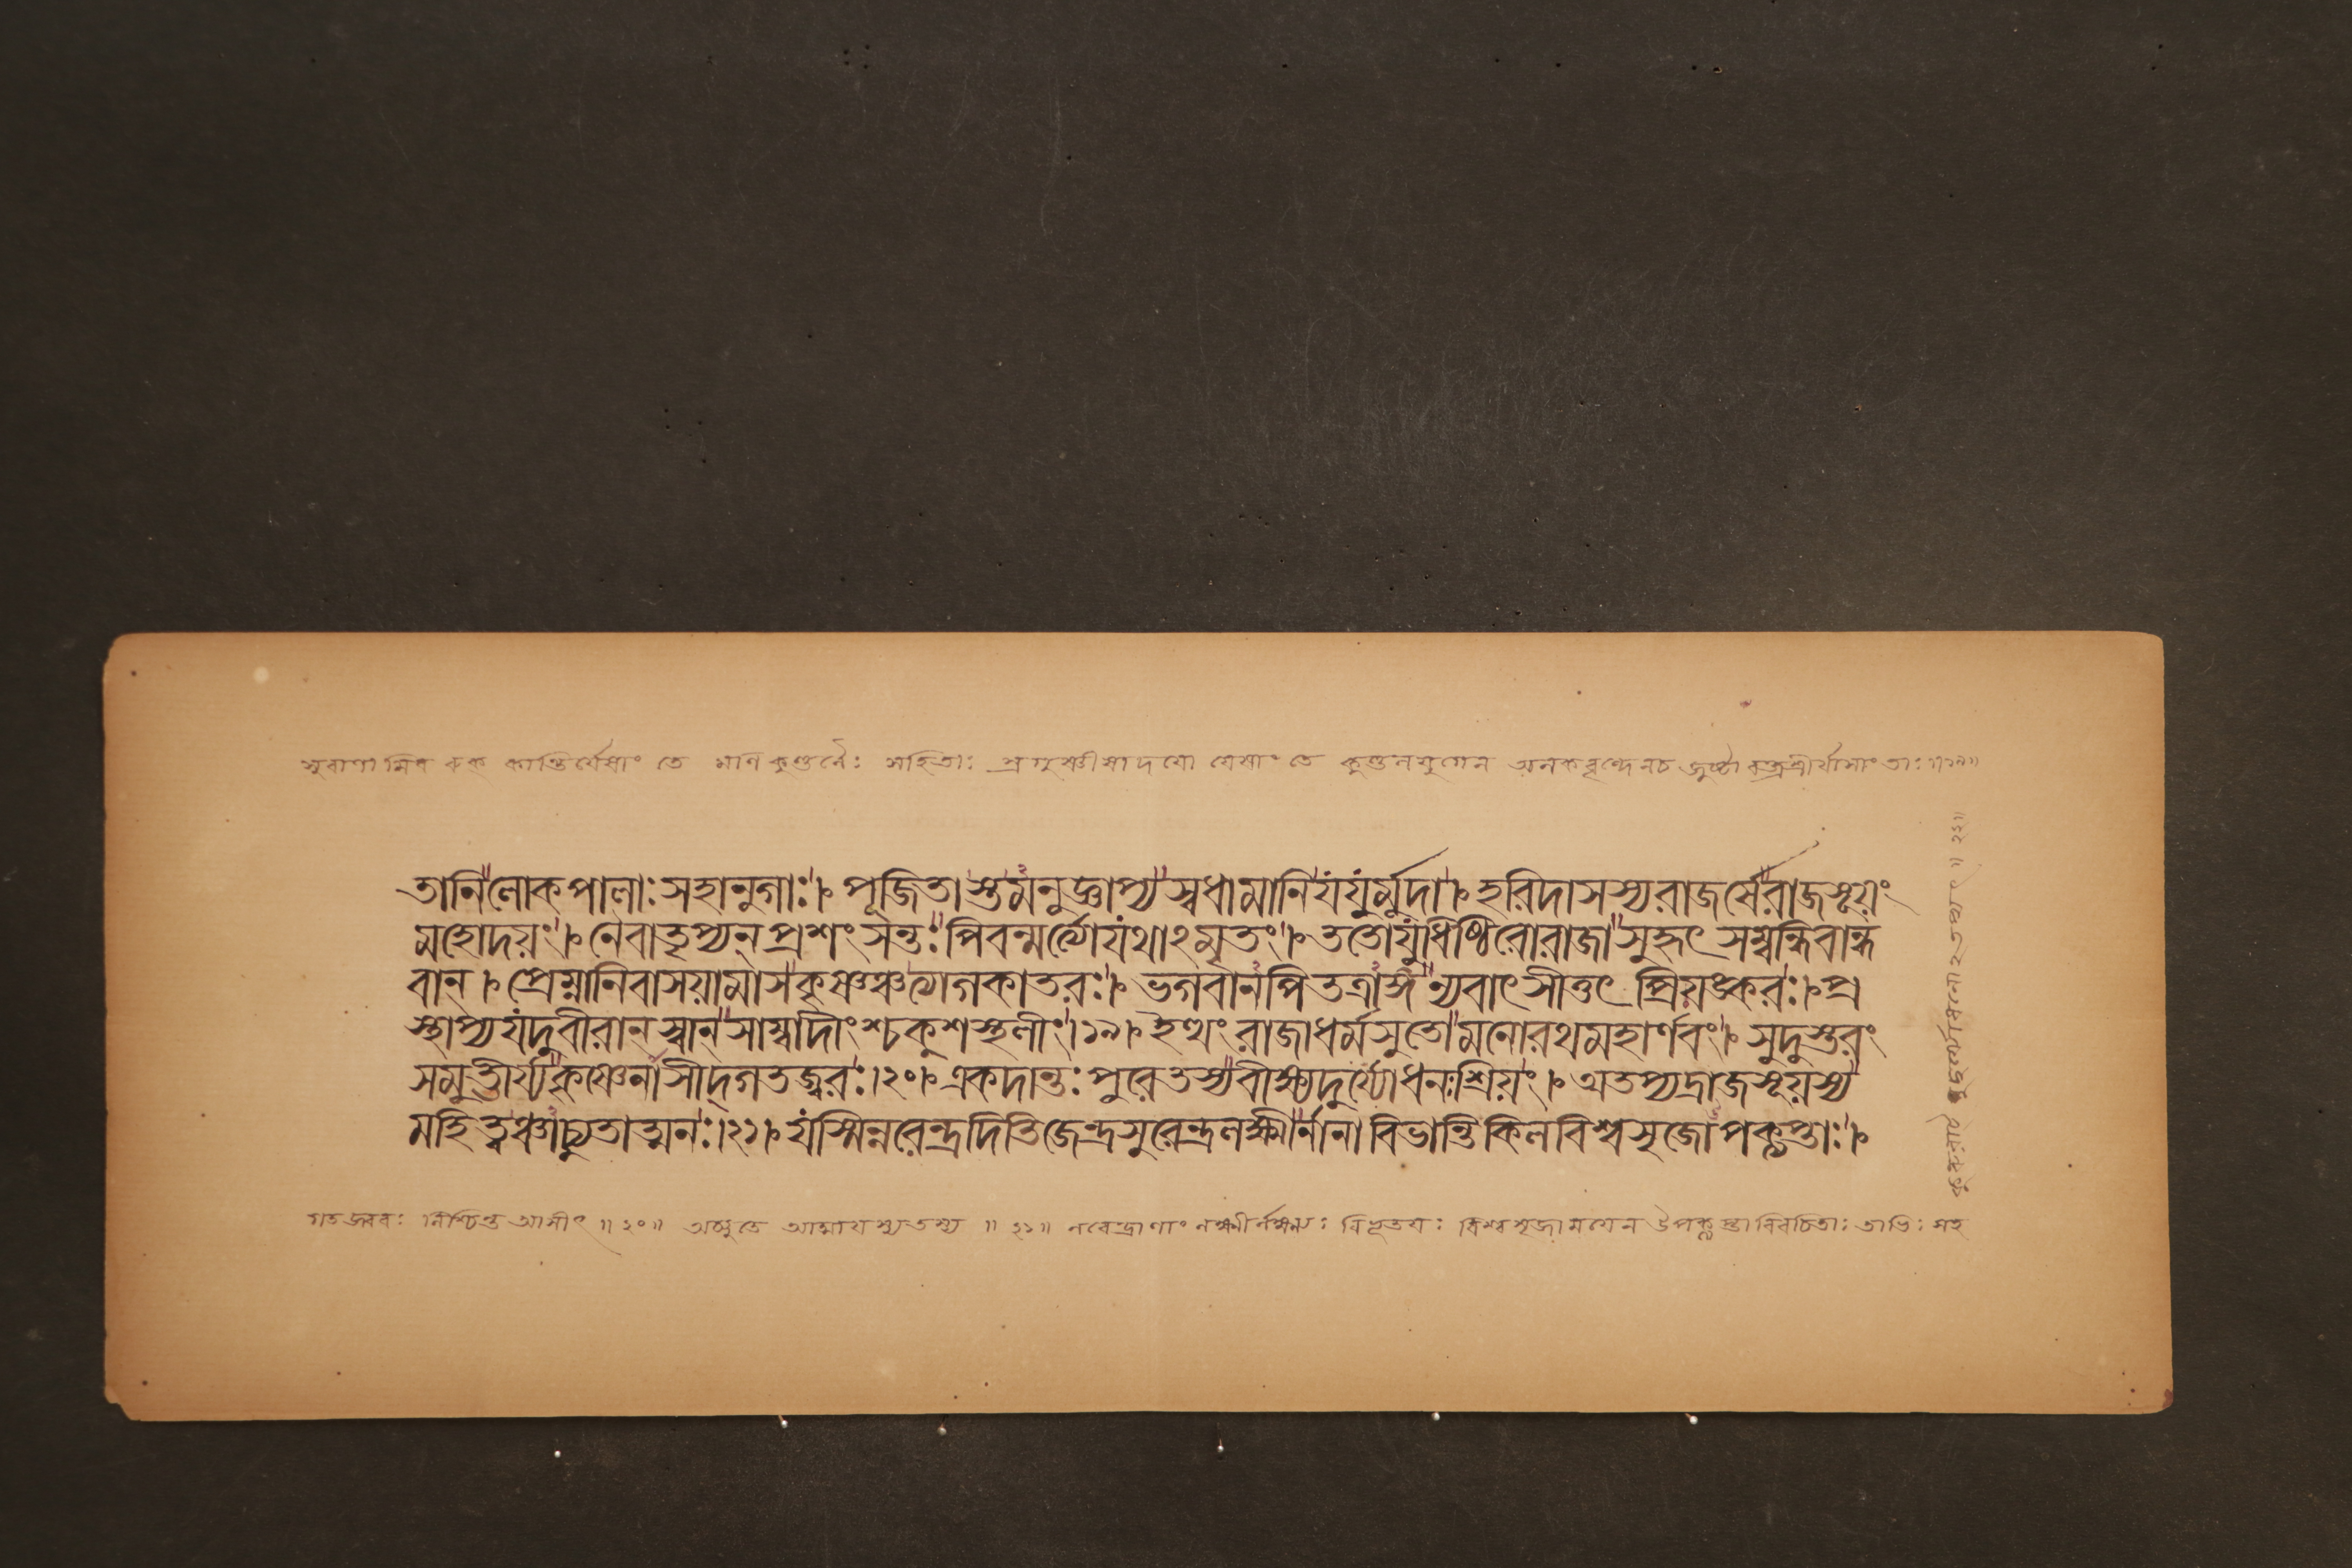 সুরাণামিব রুক্ কান্তির্যেষাং তে মণি কুণ্ডলৈঃ সহিতাঃ স্রগুষ্ণীষাদয়ো যেষাং তে কুণ্ডলযুগেন অলকবৃন্দেনচ জুষ্টা বক্ত্রশ্রীর্যাসাং তাঃ॥১৯॥
তানিলোকপালাঃ সহানুগাঃ। পূজিতাস্তমনুজ্ঞাপ্য স্বধামানি যযুর্মুদা। হরিদাসস্য রাজর্ষেরাজসূয়ং
মহোদয়ং। নৈবাতৃপ্যন্ প্রশংসন্তঃ পিবন্মর্ত্যো যথাঽমৃতং। ততোযুধিষ্ঠিরোরাজা সুহৃৎ সম্বন্ধিবান্ধ
বান্। প্রেম্না নিবাসয়ামাস কৃষ্ণঞ্চ ত্যাগকাতরঃ। ভগবানপি তত্রাঙ্গ ন্যবাৎসীত্তৎ প্রিয়ঙ্করঃ। প্র
স্থাপ্য যদুবীরান্ স্বান্ সাম্বাদীংশ্চ কুশস্থলীং।১৯। ইত্থং রাজাধর্মসুতোমনোরথমহার্ণবং। সুদুস্তরং
সমুত্তীর্য্য কৃষ্ণেনাসীদ্গতজ্বরঃ।২০। একদান্তঃ পুরে তস্য বীক্ষ্য দুর্য্যোধনঃ শ্রিয়ং। অতপ্যদ্রাজসূয়স্য
মহিত্বঞ্চাচ্যুতাত্মনঃ।২১। যস্মিন্নরেন্দ্রদিতিজেন্দ্রসুরেন্দ্রলক্ষ্মীর্নানা বিভান্তি কিল বিশ্বসৃজোপকৢপ্তাঃ।
গতজ্বরঃ নিশ্চিন্ত আসীৎ॥২০॥ অচ্যুতে আত্মা যস্য তস্য॥২১॥ নরেন্দ্রাণাং লক্ষ্মীর্লক্ষ্ম্যঃ বিভূতয়ঃ বিশ্বসৃজা ময়েন উপকৢপ্তা বিরচিতাঃ তাভিঃ সহ